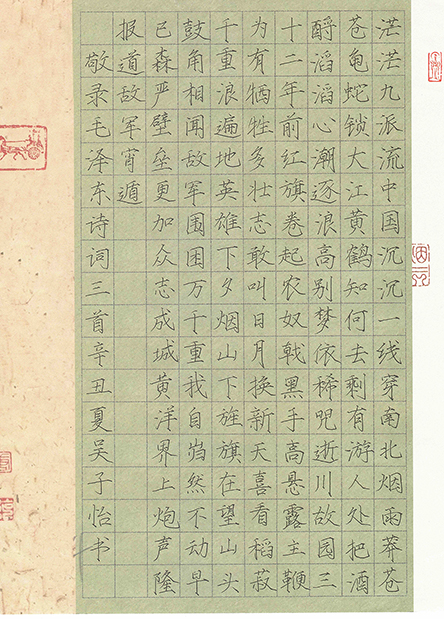 茫茫九派流中国沉沉一线穿南北烟雨莽苍
苍龟蛇锁大江黄鹤知何去剩有游人处把酒
酹滔滔心潮逐浪高别梦依稀咒逝川故园三
十二年前红旗卷起农奴戟黑手高悬露主鞭
为有牺牲多壮志敢叫日月换新天喜看稻菽
千重浪遍地英雄下夕烟山下旌旗在望山头
鼓角相闻敌军围困万千重我自岿然不动早
已森严壁垒更加众志成城黄洋界上炮声隆
报道敌军宵遁
敬录毛泽东诗词三首辛丑夏吴子怡书